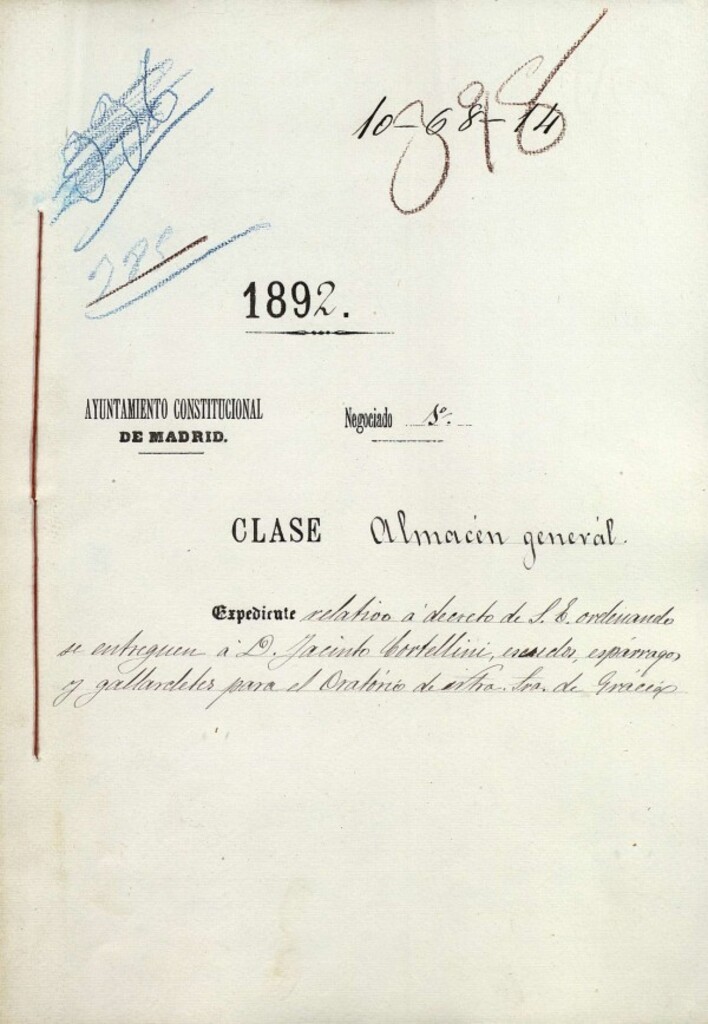 10-68-14
398
285
1892.
AYUNTAMIENTO CONSTITUCIONAL
DE MADRID.
Negociado 5º.
CLASE Almacén generál.
Expediente relativo á decreto de S. E. ordenando
se entreguen á D. Jacinto Cortellini, escudos, espárragos
y gallardetes para el Oratório de ntra. Sra. de Grácia